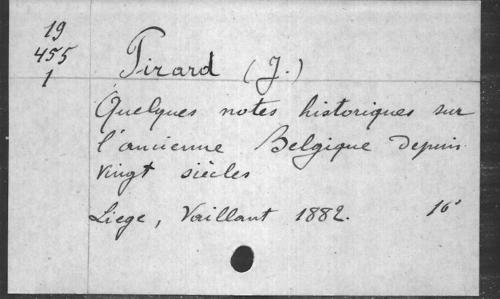 19
455
1
Pirard (J.)
Quelques notes historiques sur
l'ancienne Belgique depuis
vingt siècles
Liege, Vaillant 1882. 16°